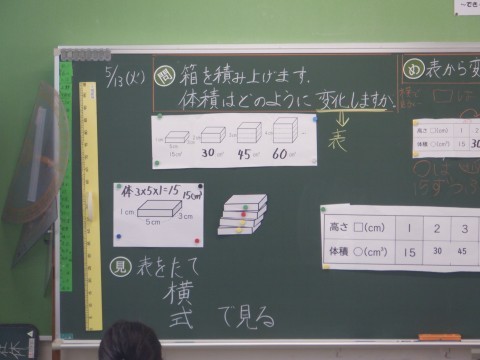 5/13(火)
問 箱を積み上げます。
体積はどのように変化しますか。
表
15cm³ 30cm³ 45cm³ 60cm³
体 3×5×1=15
15cm³
1cm
5cm
3cm
見 表をたて
横
式 で見る
め 表から変
高さ □(cm) 1 2
体積 ○(cm³) 15 30
高さ □(cm) 1 2 3
体積 ○(cm³) 15 30 45